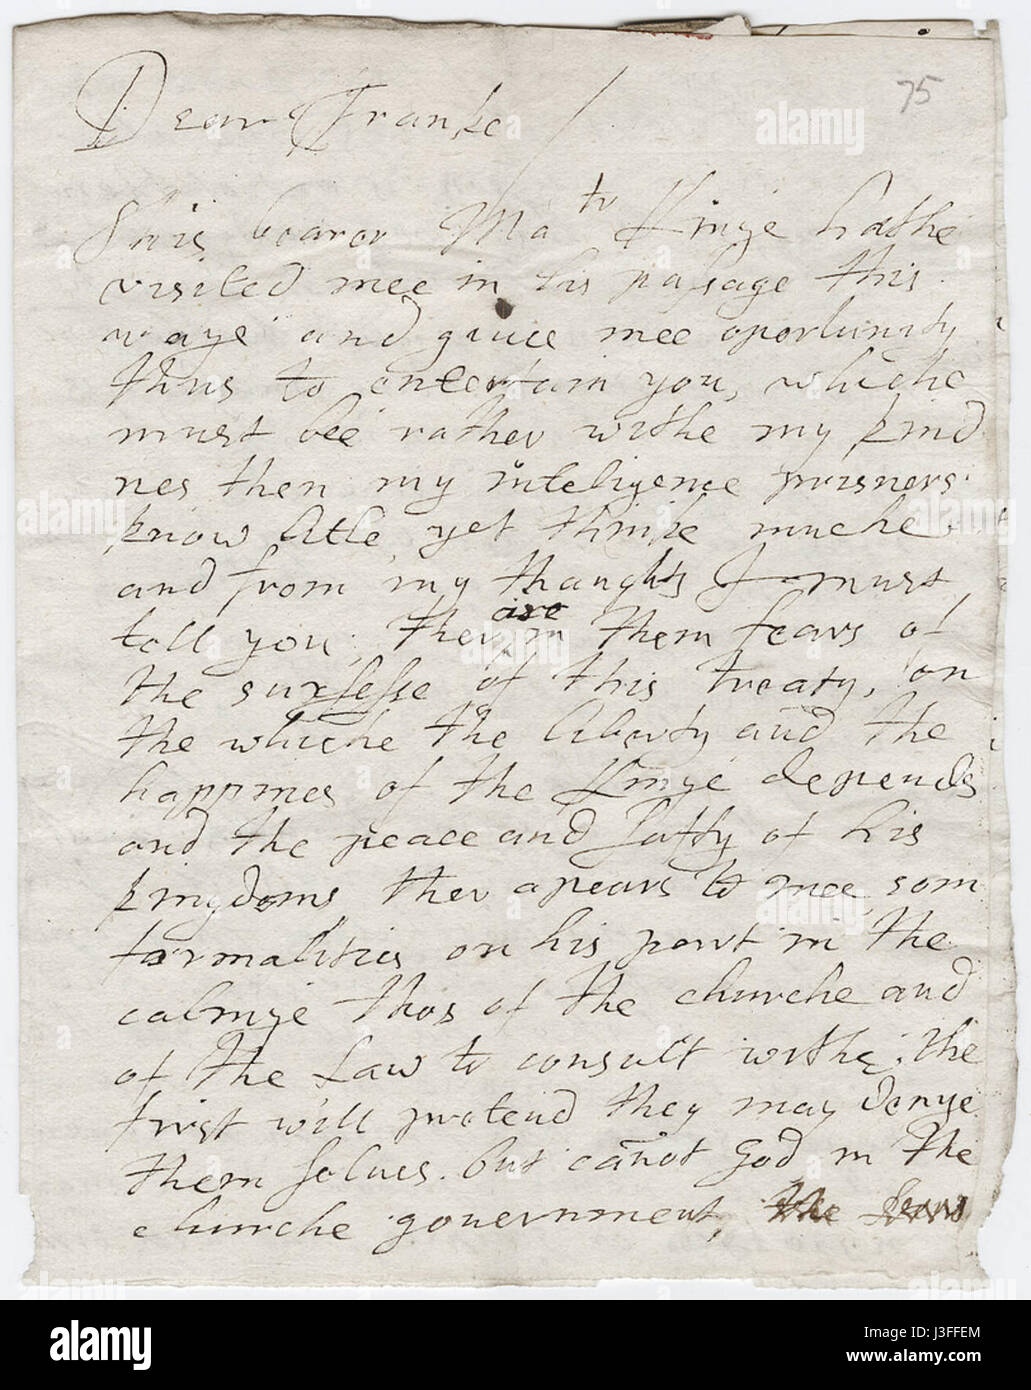 75
Dear Franke
This bearer Ma tr Kinge hathe
visited mee in his passage this
waye and giuce mee oportunity
thus to entertain you, whiche
must bee rather withe my kind
nes then my inteligence prisners
know litle, yet thinke muche
and from my thaughts I must
tell you, ther are in them fears of
the surssesse of this treaty, on
the whiche the liberty and the
happines of the Kinge depends
and the peace and saffty of his
kingdoms ther apears to mee som
formalities on his part in the
calinge thos of the churche and
of the Law to consult withe, the
first will pretend they may denye
them selues. but cañot God in the
churche government, the
alamy
Image ID: J3FFEM
www.alamy.com